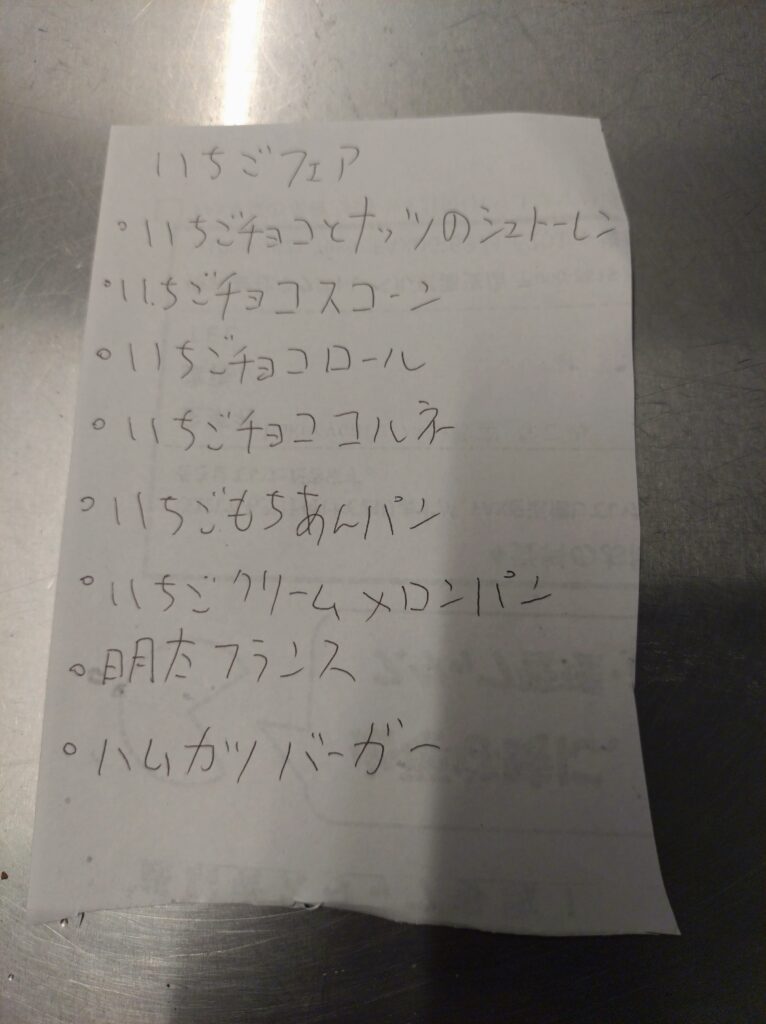 いちごフェア
。いちごチョコとナッツのシュトーレン
。いちごチョコスコーン
。いちごチョコロール
。いちごチョココルネ
。いちごもちあんパン
。いちごクリームメロンパン
。明太フランス
。ハムカツバーガー